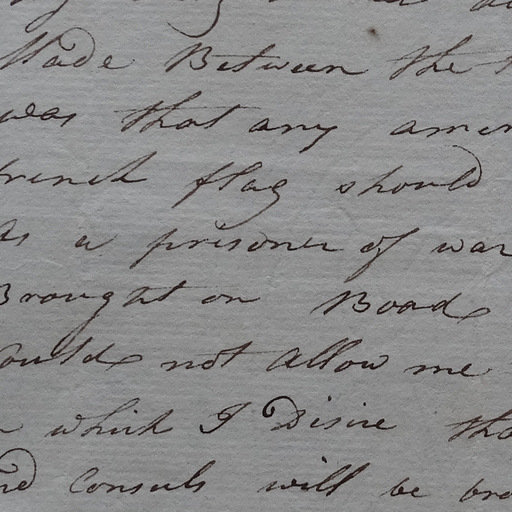 Made Between the
was that any amer
french flag should
as a prisoner of war
Brought on Board
ould not allow me
which I Disire tha
nd Consuls will be bro